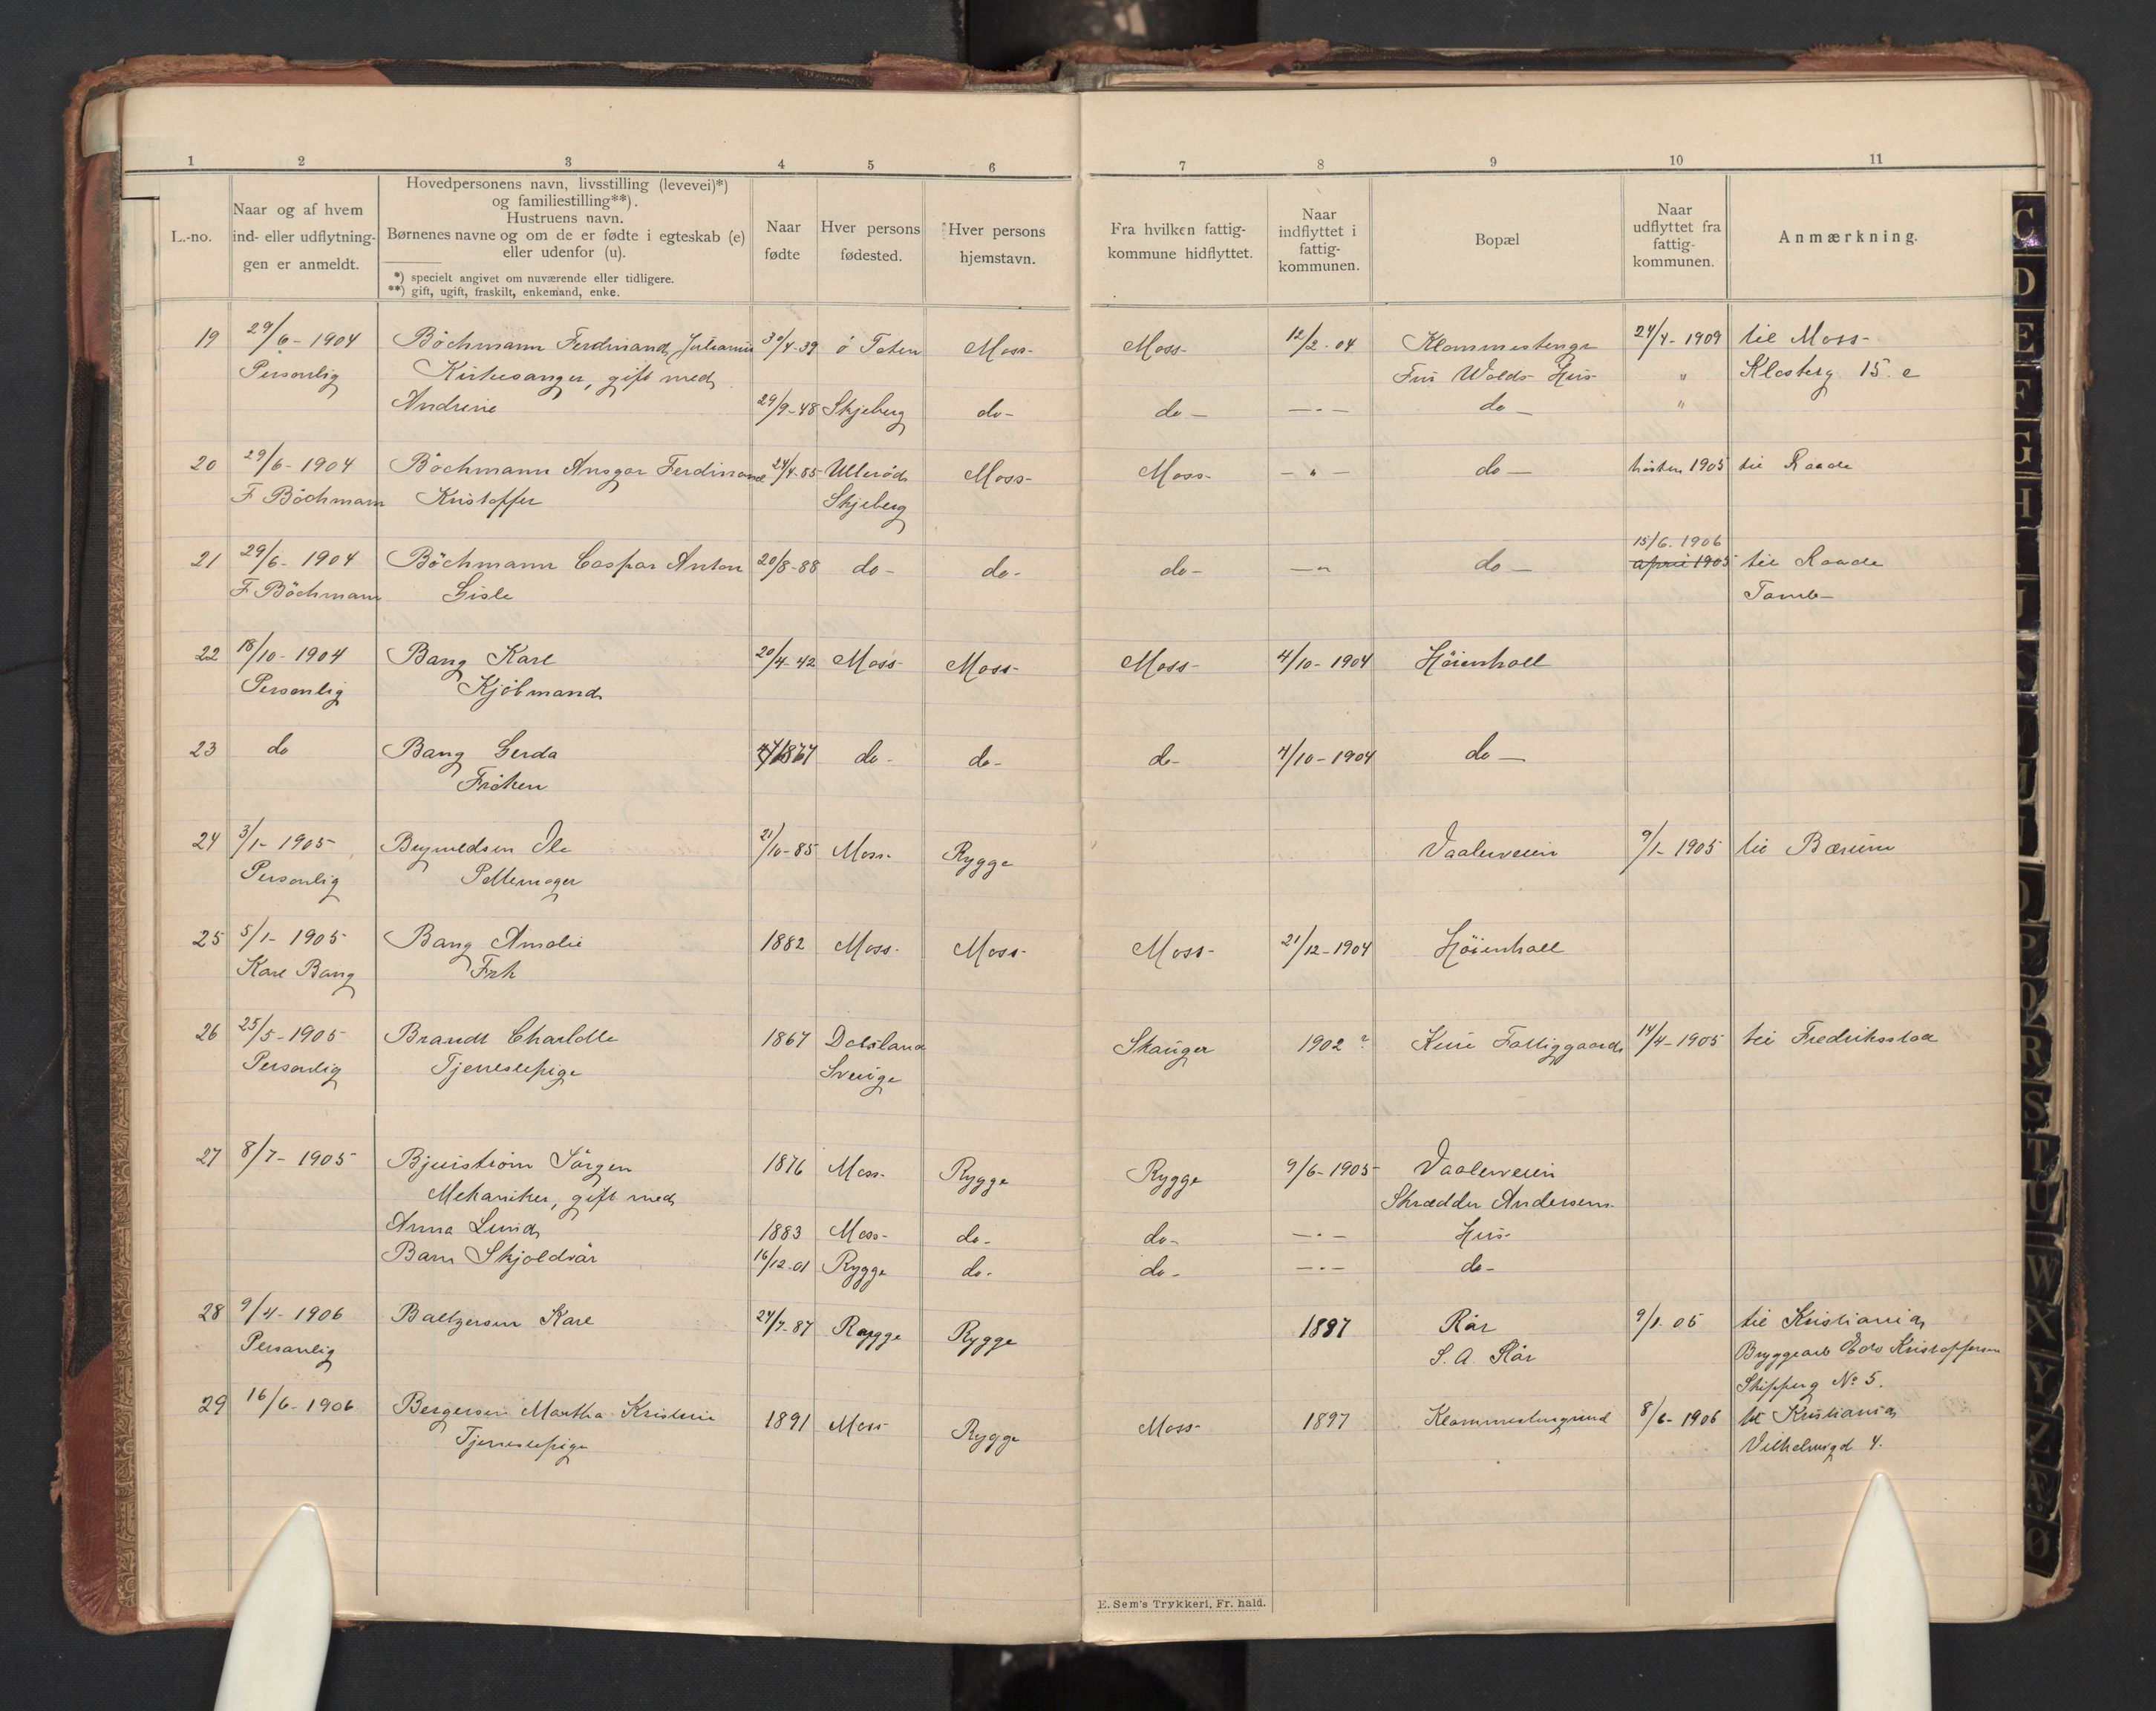 1 2 3 4 5 6 7 8 9 10 11
L.-no.
Naar og af hvem
ind- eller udflytnin-
gen er anmeldt.
Hovedpersonens navn, livsstilling (levevei)*)
og familiestilling**).
Hustruens navn.
Børnenes navne og om de er fødte i egteskab (e)
eller udenfor (u).
*) specielt angivet om nuværende eller tidligere.
**) gift, ugift, fraskilt, enkemand, enke.
Naar
fødte
Hver persons
fødested.
Hver persons
hjemstavn.
Fra hvilken fattig-
kommune hidflyttet.
Naar
indflyttet i
fattig-
kommunen.
Bopæl
Naar
udflyttet fra
fattig-
kommunen.
Anmærkning.
19 29/6 - 1904 Böchmann Ferdinand 30/4-39 ö Toten Moss- Moss- 12/2-04 24/4-1909 til Moss-
Personlig Kirkesanger, gift med Fru Wolds Hus " Klosterg 15. e
Andrine 29/9-48 Skjeberg do- do- -"- do- "
20 29/6-1904 Böchmann Ansgar Ferdinand 24/4-85 Ullerød Moss- Moss- -"- do- høsten 1905 til Raade
F Böchmann Kristoffer Skjeberg
15/6. 1906
21 29/6-1904 Böchmann Caspar Anton 20/8-88 do- do- do- -"- do- april 1905 til Raade
F Böchmann Gisle Tomb-
22 18/10-1904 Bang Karl 20/4-42 Moss- Moss- Moss- 4/10-1904 Höienhall
Personlig Kjöbmand
23 do Bang Gerda do- do- do- 4/10-1904 do-
Fröken
24 3/1-1905 Ole 21/10-85 Moss- Rygge Vaalerveien 9/1-1905 til Bærum
Personlig Pottemager
25 5/1-1905 Bang Amalie 1882 Moss- Moss- Moss- 21/12-1904 Höienhall
Karl Bang Frk
26 25/5-1905 Brandt Charlotte 1867 Dalsland 1902? Fattiggaard 14/4-1905 til Fredrikstad
Personlig Tjenestepige Sverige
27 8/7-1905 Bjurström Jörgen 1876 Moss- Rygge Rygge 9/6-1905- Vaalerveien
Mekaniker, gift med Skrædder Andersens
Anna Lund 1883 Moss- do- do- -"- Hus-
Barn Skjoldvår 16/12-01 Rygge do- do- -"- do-
28 9/4-1906 Baltzersen Karl 24/7-87 Rygge Rygge 1887 Rör 9/1.06 til Kristiania
Personlig S. A. Rör Bryggearb Edv Kristoffersen
Skipperg No 5.
29 16/6-1906 Bergersen Martha Kristine 1891 Moss- Rygge Moss- 1897 8/6-1906 til Kristiania
Tjenestepige 4.
E. Sem's Trykkeri, Fr. hald.
C
D
E
F
G
H
J
Q
R
S
T
U
W
X
Y
Z
Ø